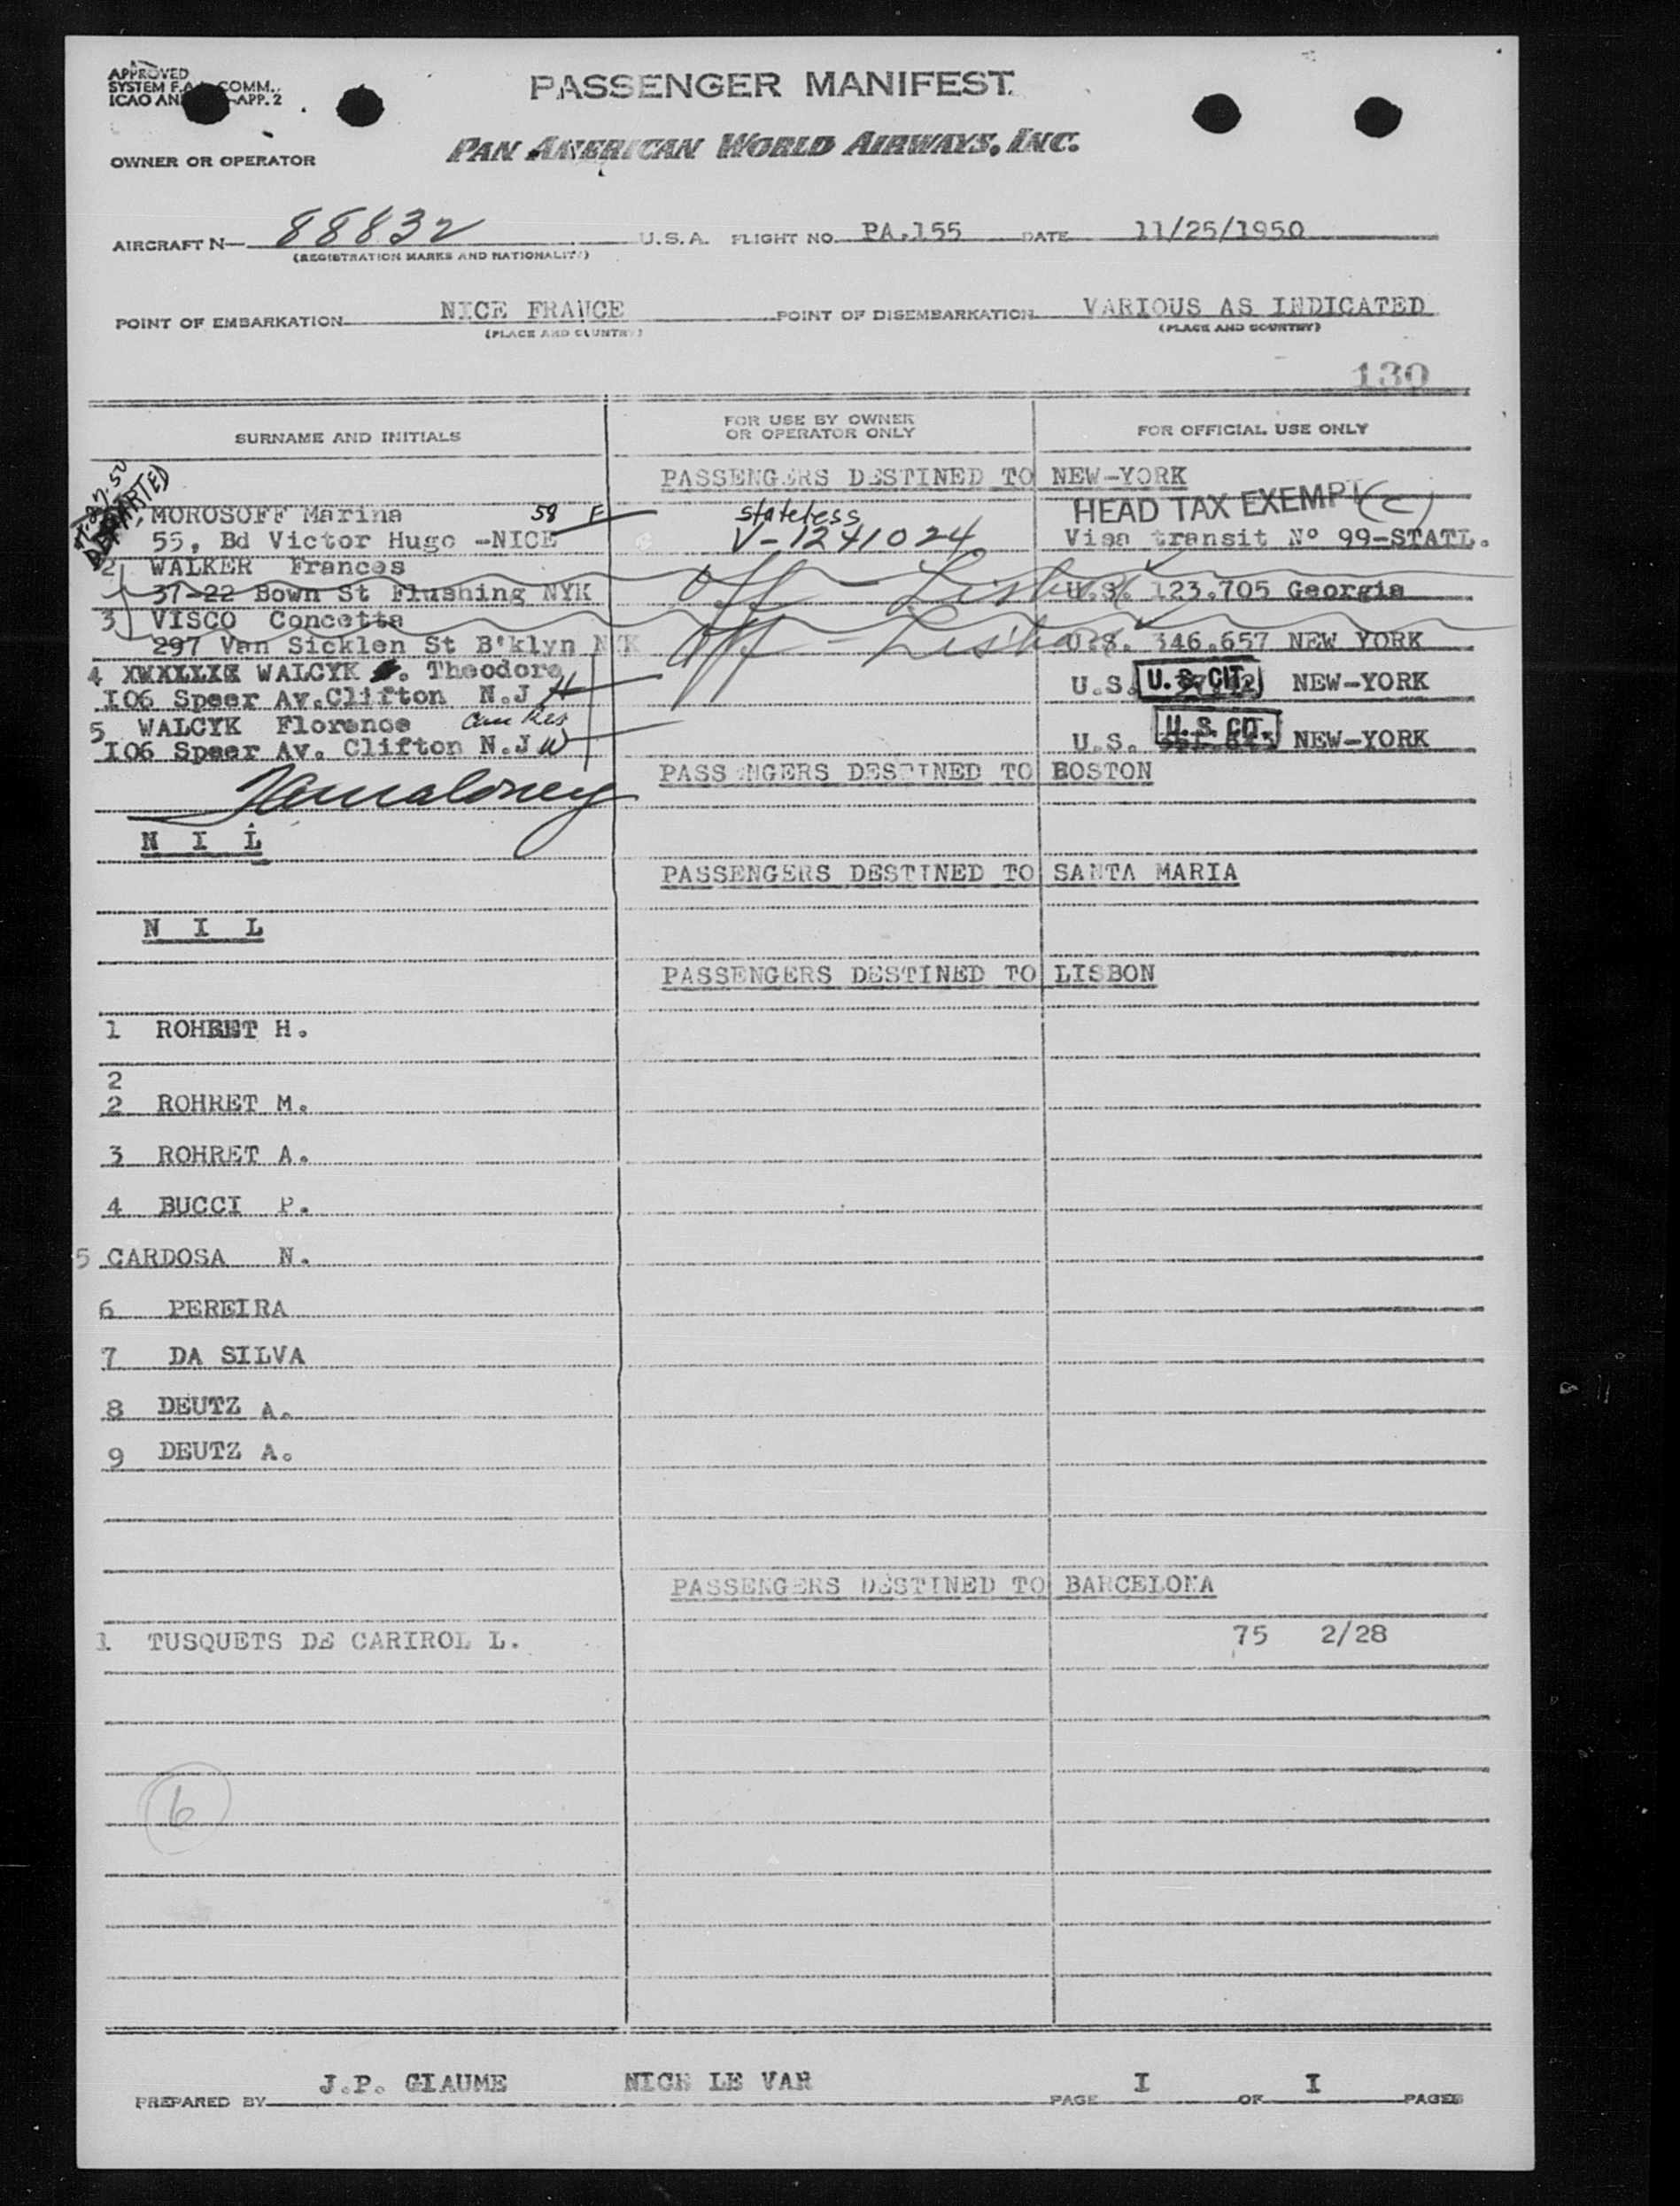 APPROVED
SYSTEM F.A.L. COMM.,
ICAO AN APP. 2
PASSENGER MANIFEST
PAN AMERICAN WORLD AIRWAYS, INC.
OWNER OR OPERATOR
AIRCRAFT N— 88832 U.S.A. FLIGHT NO. PA.155 DATE 11/25/1950
(REGISTRATION MARKS AND NATIONALITY)
POINT OF EMBARKATION NICE FRANCE POINT OF DISEMBARKATION VARIOUS AS INDICATED
(PLACE AND COUNTRY) (PLACE AND COUNTRY)
130
SURNAME AND INITIALS FOR USE BY OWNER OR OPERATOR ONLY FOR OFFICIAL USE ONLY
PASSENGERS DESTINED TO NEW-YORK
DEPARTED
HEAD TAX EXEMPT (c)
MOROSOFF Marina 58 F stateless
55, Bd Victor Hugo -NICE V-1241024 Visa transit N° 99-STATL.
2 WALKER Frances
37-22 Bown St Flushing NYK Off - Lisbon U.S. 123.705 Georgia
3 VISCO Concetta
297 Van Sicklen St B'klyn NYK Off - Lisbon U.S. 346.657 NEW YORK
4 WALCYK . Theodore
I06 Speer Av.Clifton N.J H U.S. U.S. CIT. NEW-YORK
5 WALCYK Florence
I06 Speer Av. Clifton N.J W U.S. U.S. CIT. NEW-YORK
PASSENGERS DESTINED TO BOSTON
N I L
PASSENGERS DESTINED TO SANTA MARIA
N I L
PASSENGERS DESTINED TO LISBON
1 ROHRET H.
2
2 ROHRET M.
3 ROHRET A.
4 BUCCI P.
5 CARDOSA N.
6 PEREIRA
7 DA SILVA
8 DEUTZ A.
9 DEUTZ A.
PASSENGERS DESTINED TO BARCELONA
1 TUSQUETS DE CARIROL L. 75 2/28
6
PREPARED BY J.P. GIAUME NICE LE VAR PAGE I OF I PAGES